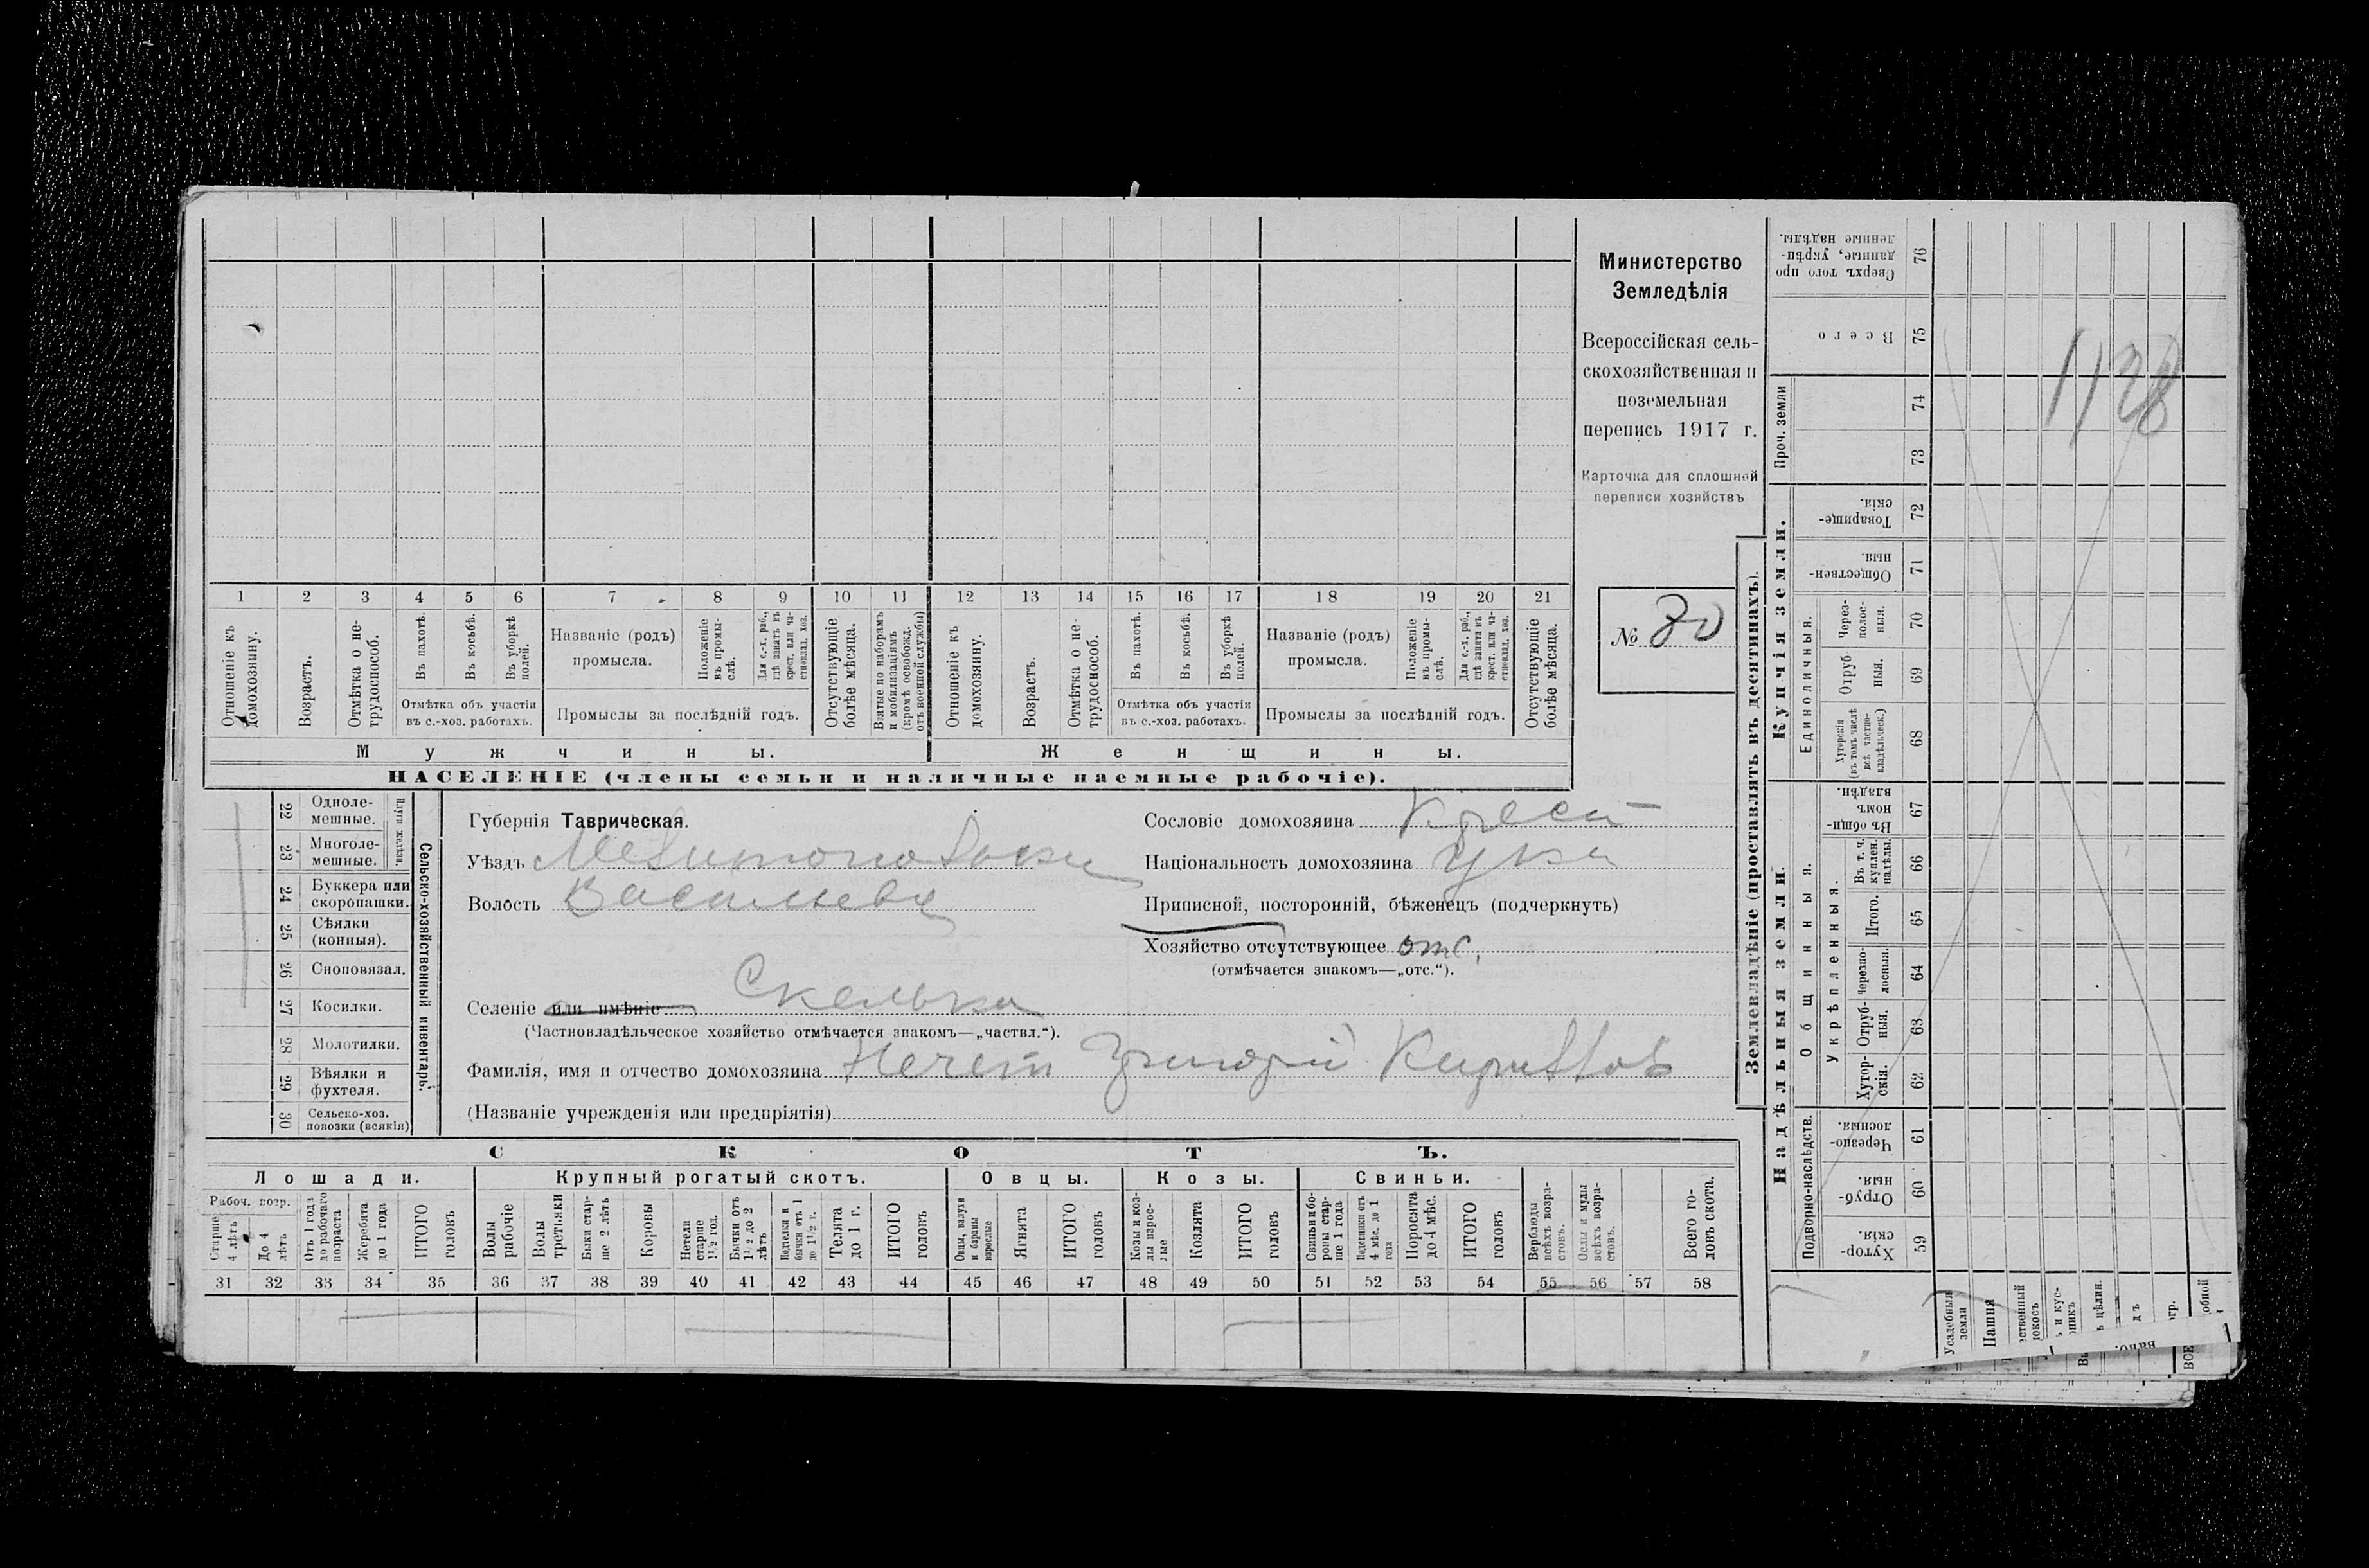 Министерство
Земледѣлія
Всероссійская сель-
скохозяйственная и
поземельная
перепись 1917 г.
Карточка для сплошной
переписи хозяйствъ
№ 80
1128
1 2 3 4 5 6 7 8 9 10 11 12 13 14 15 16 17 18 19 20 21
Отношеніе къ домохозяину.
Возрастъ.
Отмѣтка о не-трудоспособ.
Въ пахотѣ.
Въ косьбѣ.
Въ уборкѣ полей.
Отмѣтка объ участіи
въ с.-хоз. работахъ.
Названіе (родъ)
промысла.
Положеніе въ промы-слѣ.
Для с.-х. раб., гдѣ занятъ въ крест. или ча-стновлад. хоз.
Промыслы за послѣдній годъ.
Отсутствующіе болѣе мѣсяца.
Взятые по наборамъ и мобилизаціямъ (кромѣ освобожд. отъ военной службы)
Отношеніе къ домохозяину.
Возрастъ.
Отмѣтка о не-трудоспособ.
Въ пахотѣ.
Въ косьбѣ.
Въ уборкѣ полей.
Отмѣтка объ участіи
въ с.-хоз. работахъ.
Названіе (родъ)
промысла.
Положеніе въ промы-слѣ.
Для с.-х. раб., гдѣ занята въ крест. или ча-стновлад. хоз.
Промыслы за послѣдній годъ.
Отсутствующіе болѣе мѣсяца.
Мужчины. Женщины.
НАСЕЛЕНІЕ (члены семьи и наличные наемные рабочіе).
Сельско-хозяйственный инвентарь.
22 Одноле-мешные.
23 Многоле-мешные.
24 Буккера или скоропашки.
25 Сѣялки (конныя).
26 Сноповязал.
27 Косилки.
28 Молотилки.
29 Вѣялки и фухтеля.
30 Сельско-хоз. повозки (всякія)
Губернія Таврическая.
Уѣздъ
Волость
Селеніе или имѣніе Скелька
(Частновладѣльческое хозяйство отмѣчается знакомъ—„частвл.“).
Фамилія, имя и отчество домохозяина Нечет Григорій
(Названіе учрежденія или предпріятія)
Сословіе домохозяина Крест
Національность домохозяина Укр
Приписной, посторонній, бѣженецъ (подчеркнуть)
Хозяйство отсутствующее отс.
(отмѣчается знакомъ—„отс.“).
СКОТЪ.
Лошади. Крупный рогатый скотъ. Овцы. Козы. Свиньи.
Рабоч. возр.
Старше 4 лѣтъ
До 4 лѣтъ
Отъ 1 года до рабочаго возраста
Жеребята до 1 года
ИТОГО головъ
Волы рабочіе
Волы третьяки
Быки стар-ше 2 лѣтъ
Коровы
Нетели старше 1½ год.
Бычки отъ 1½ до 2 лѣтъ
Телята до 1 г.
ИТОГО головъ
Овцы, валухи и бараны взрослые
Ягнята
ИТОГО головъ
Козы и коз-лы взрос-лые
Козлята
ИТОГО головъ
Свиньи и бо-ровы стар-ше 1 года
Поросята до 4 мѣс.
ИТОГО головъ
Верблюды всѣхъ возра-стовъ.
Ослы и мулы всѣхъ возра-стовъ.
Всего го-ловъ скота.
31 32 33 34 35 36 37 38 39 40 41 42 43 44 45 46 47 48 49 50 51 52 53 54 55 56 57 58
Землевладѣніе (проставлять въ десятинахъ).
Надѣльныя земли. Купчія земли. Проч. земли
Подворно-наслѣдств.
Общинныя.
Укрѣпленныя.
Единоличныя.
Хутор-скія. 59
Отруб-ныя. 60
Черезпо-лосныя. 61
Хутор-скія. 62
Отруб-ныя. 63
Черезпо-лосныя. 64
Итого. 65
Въ т. ч. куплен. надѣлы. 66
Въ общин-номъ владѣн. 67
Хуторскія (въ томъ числѣ всѣ частно-владѣльческ.) 68
Отруб ныя. 69
Через-полос-ныя. 70
Обществен-ныя. 71
Товарище-скія. 72
73
74
Всего 75
Сверхъ того про данные, укрѣп-ленные надѣлы. 76
Усадебныя земли
Пашня